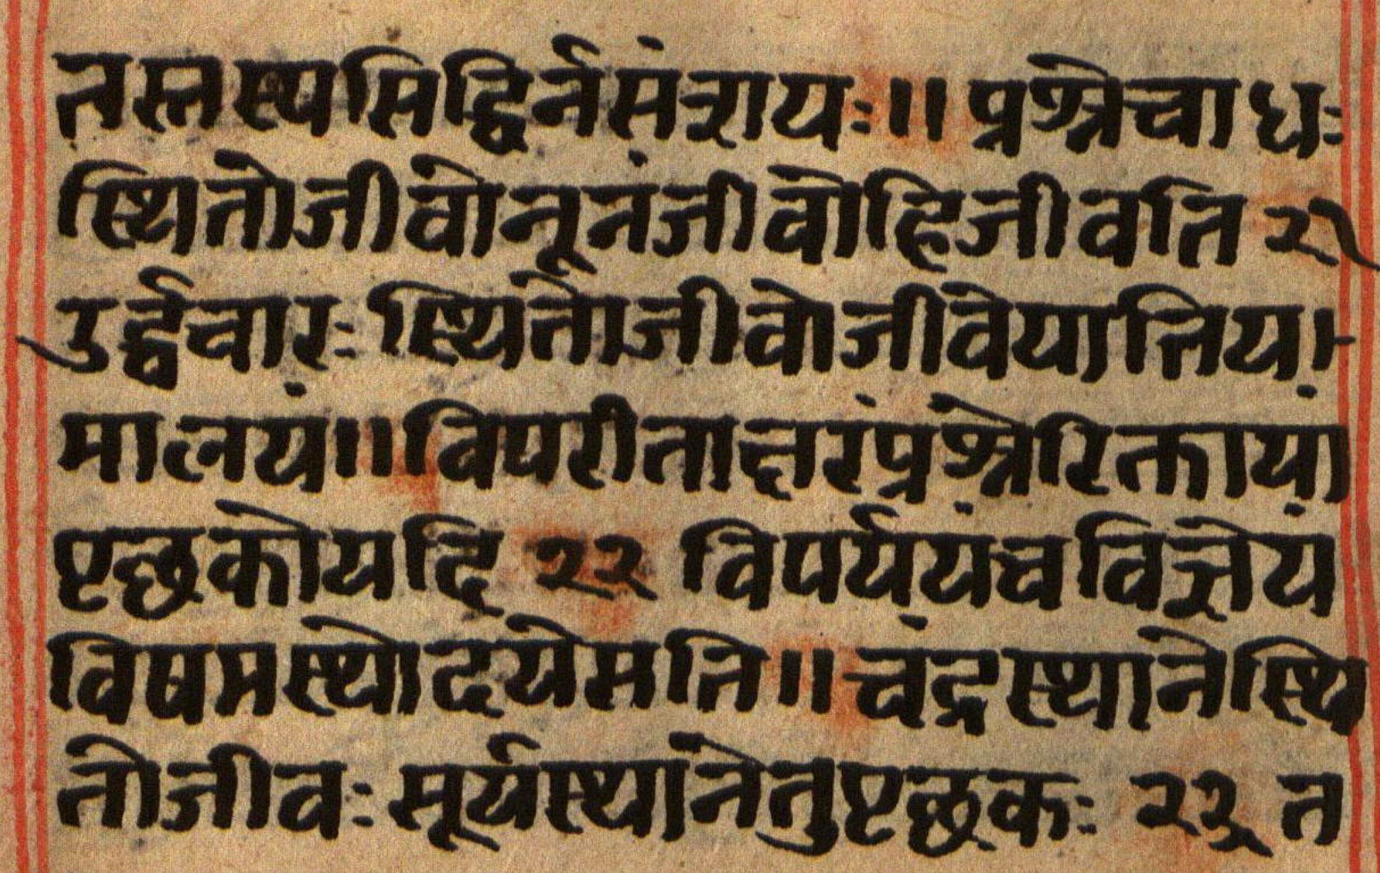 तस्तस्यसिद्धिर्नसंशयः॥ प्रश्नेचाधः
स्थितोजीवोनूनंजीवोहिजीवति २१
उर्द्धचारः स्थितोजीवोजीवेयातिय।
मालयं॥ विपरीताक्षरंप्रश्नेरिक्ताया
पृछकोयदि २२ विपर्ययचविज्ञेय
विषमस्थोदयेसति॥ चंद्रस्थानेस्थि
तोजीवः सूर्यस्थानेतुपृछकः २३ त